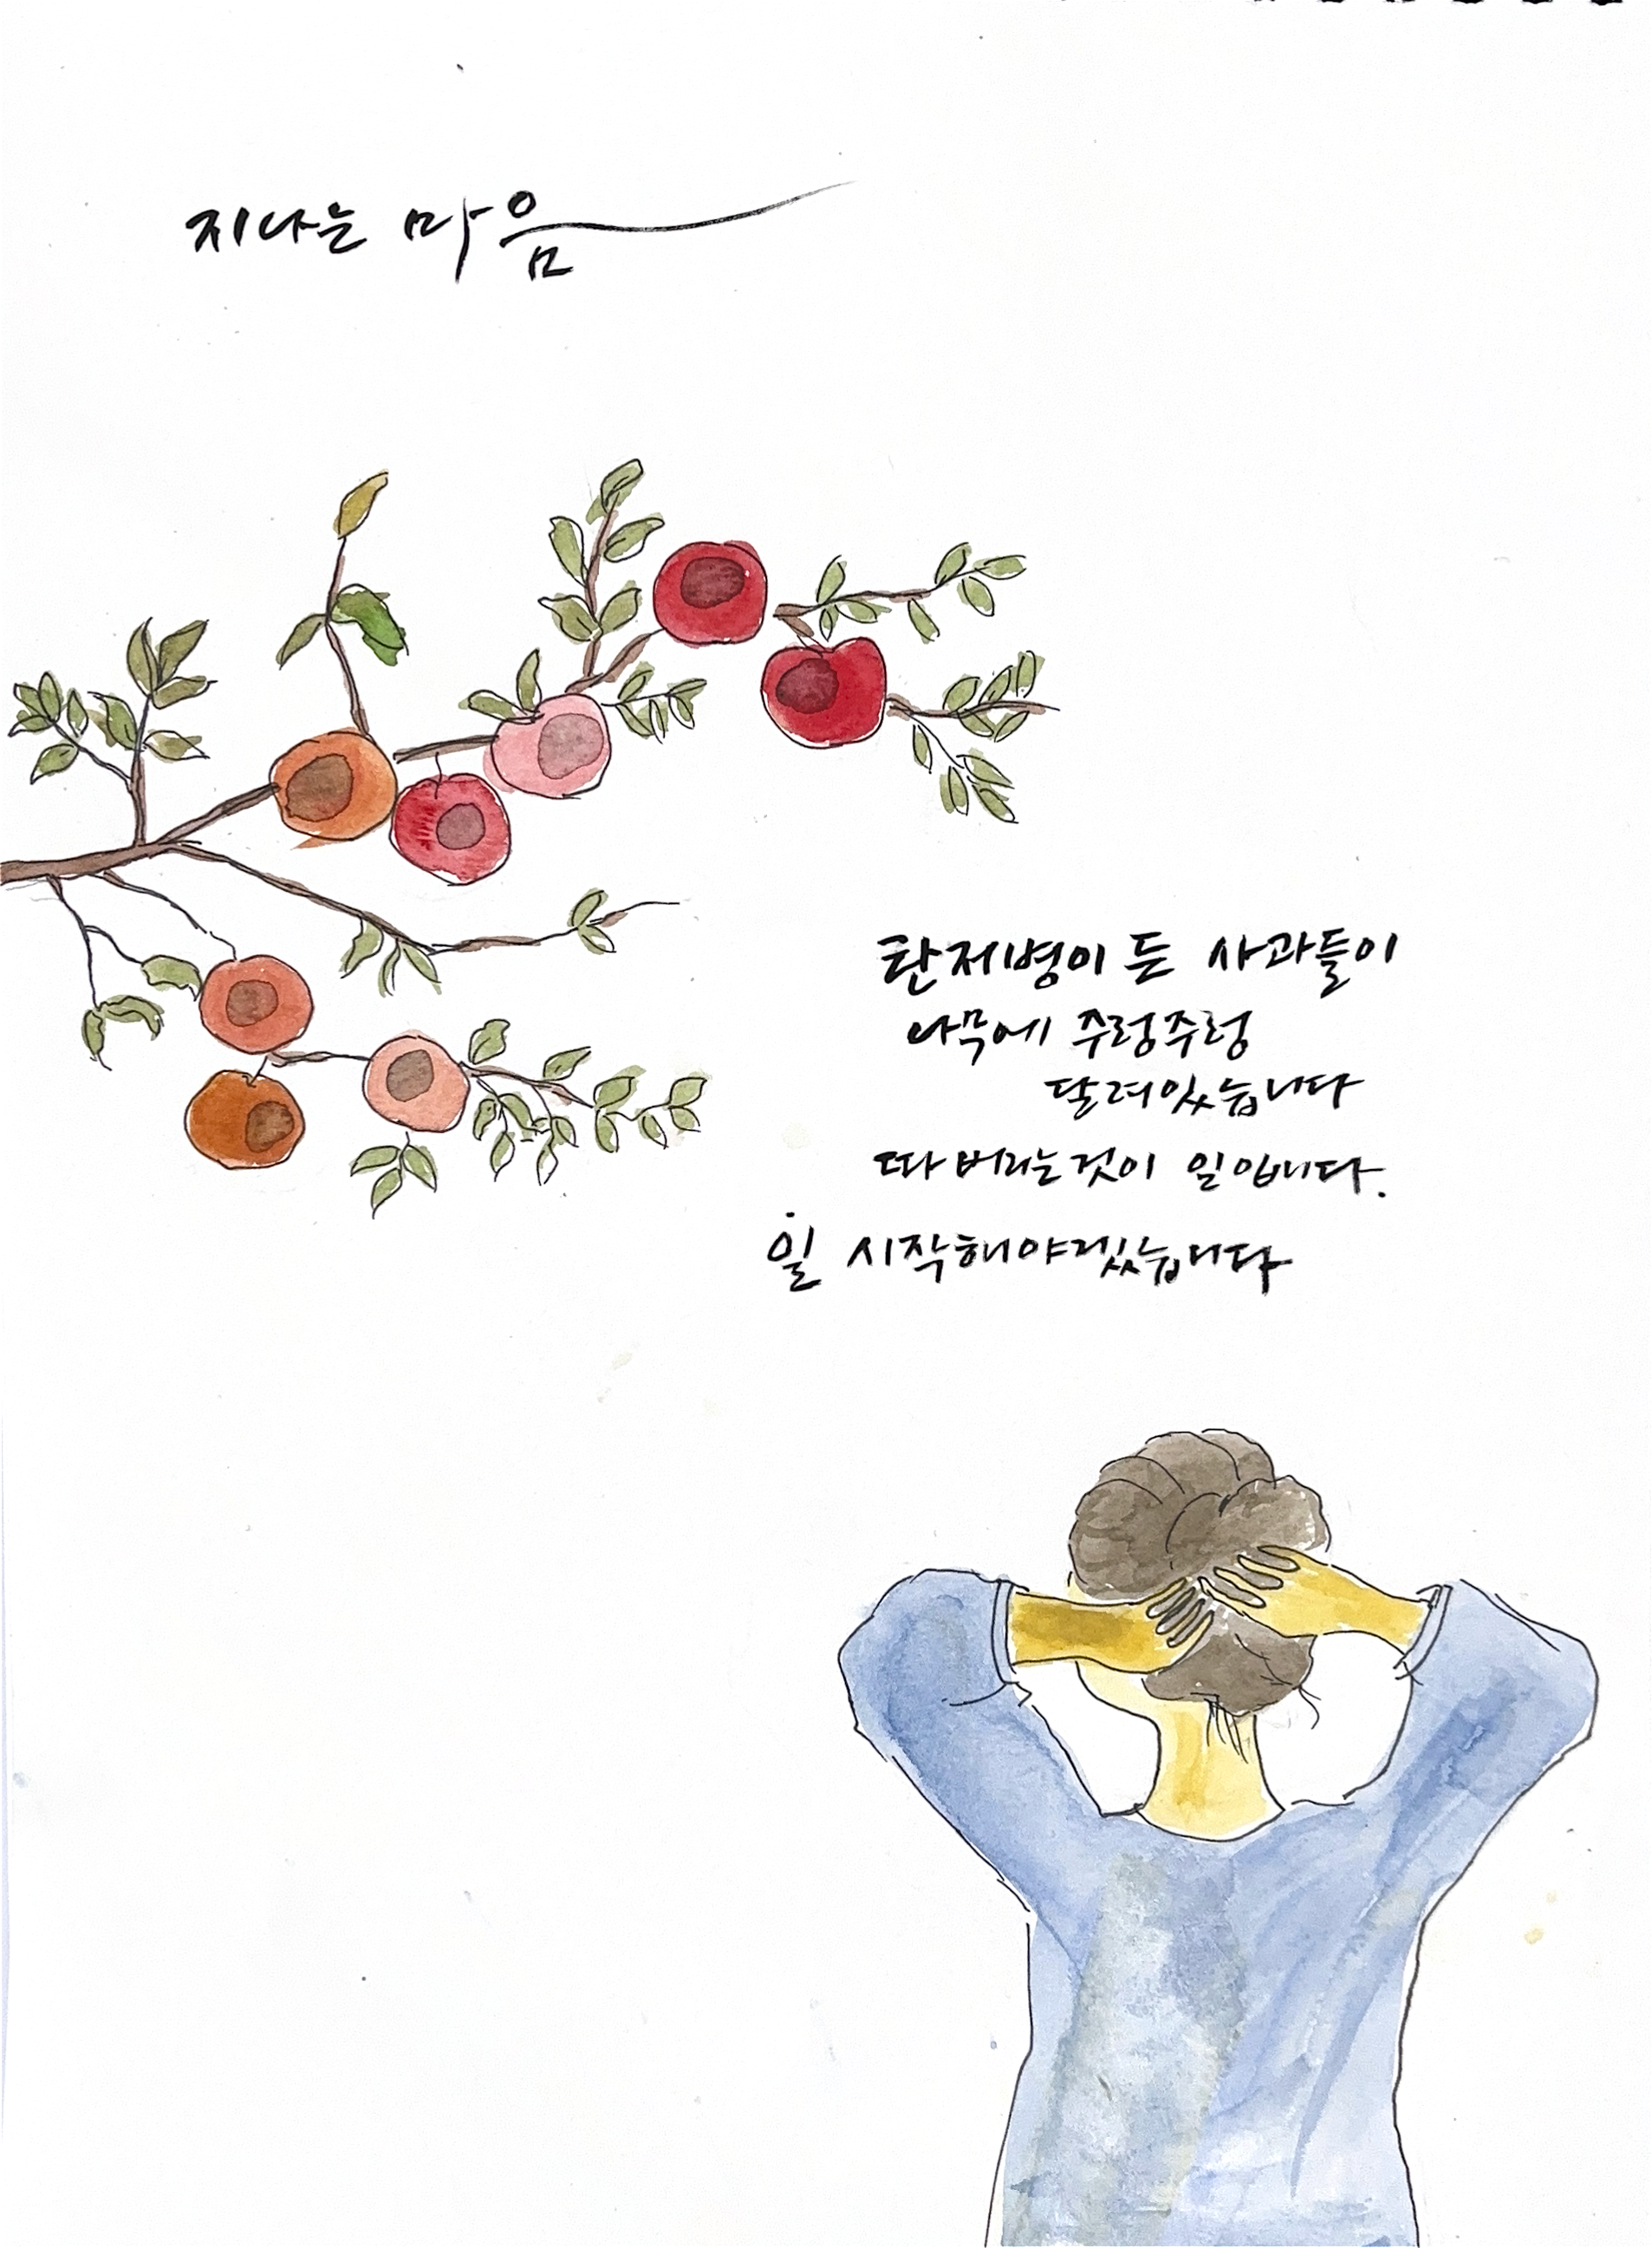 지나는 마음
탄저병이 든 사과들이
나무에 주렁주렁
달려있습니다
따 버리는것이 일입니다.
일 시작해야겠습니다